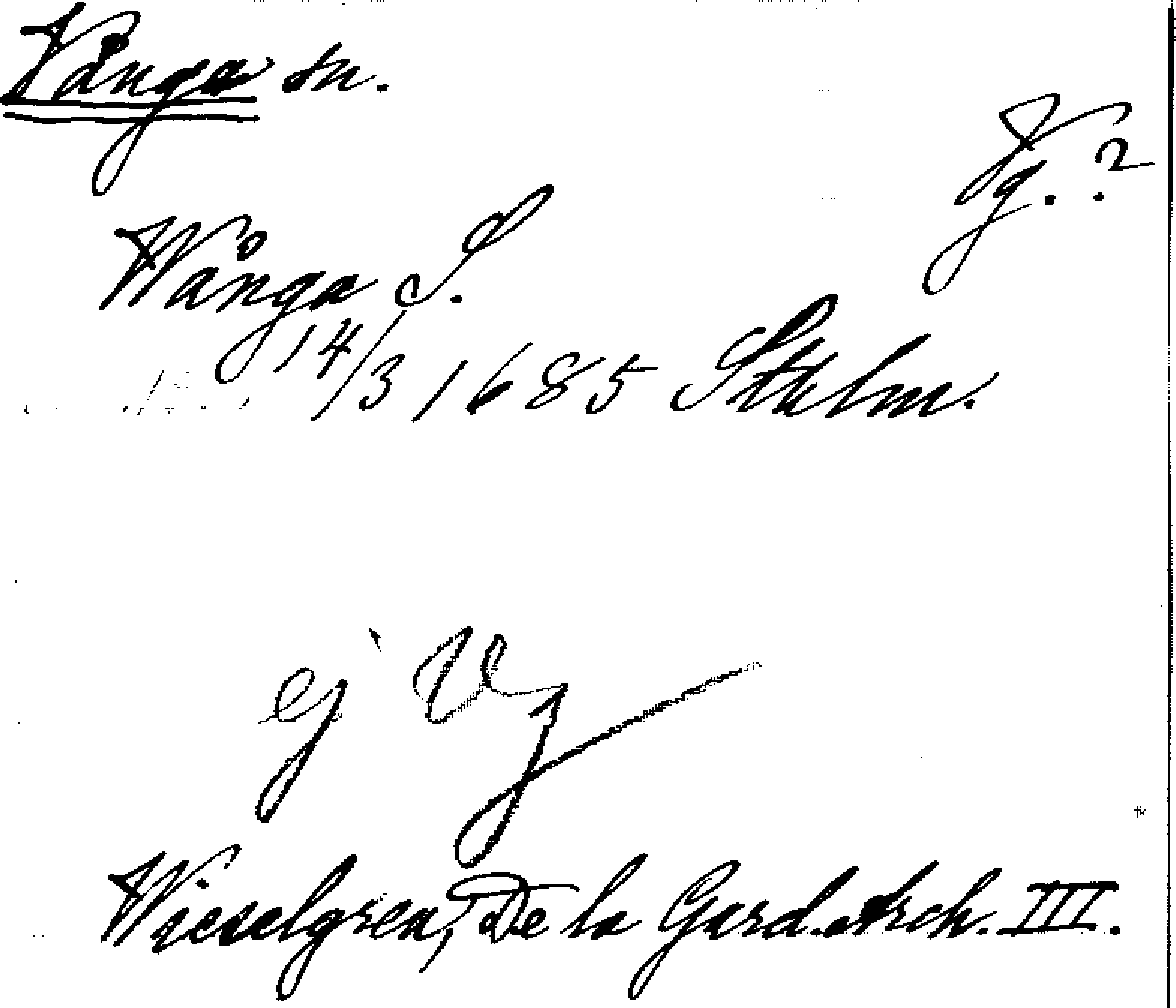 Vånga sn.
Vg. ?
Wånga S.
14/3 1685 Sthlm.
ej Vg
Wieselgren, De la Gard. Arch. III.